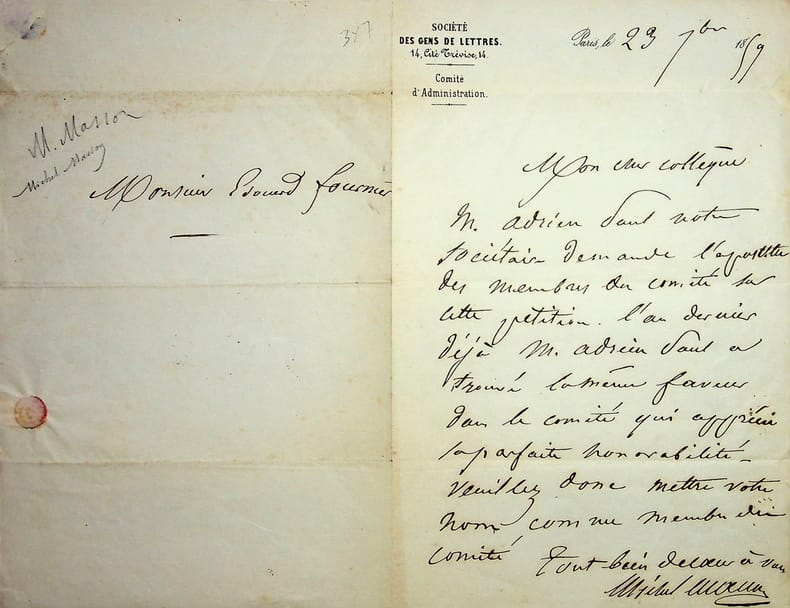 347
M. Masson
Michel Masson
Monsieur Edouard fournier
SOCIÉTÉ
DES GENS DE LETTRES.
14, Cité Trévise, 14.
Comité
d'Administration.
Paris, le 23 7bre 1859
Mon cher collègue
M. adrien Paul notre
sociétaire demande l'apostille
des membres du comité sur
cette petition. l'an dernier
déjà M. adrien Paul a
trouvé la même faveur
dans le comité qui apprécie
sa parfaite honorabilité.
veuillez donc mettre votre
nom comme membre du
comité
Tout bien de cœur à vous
Michel Masson